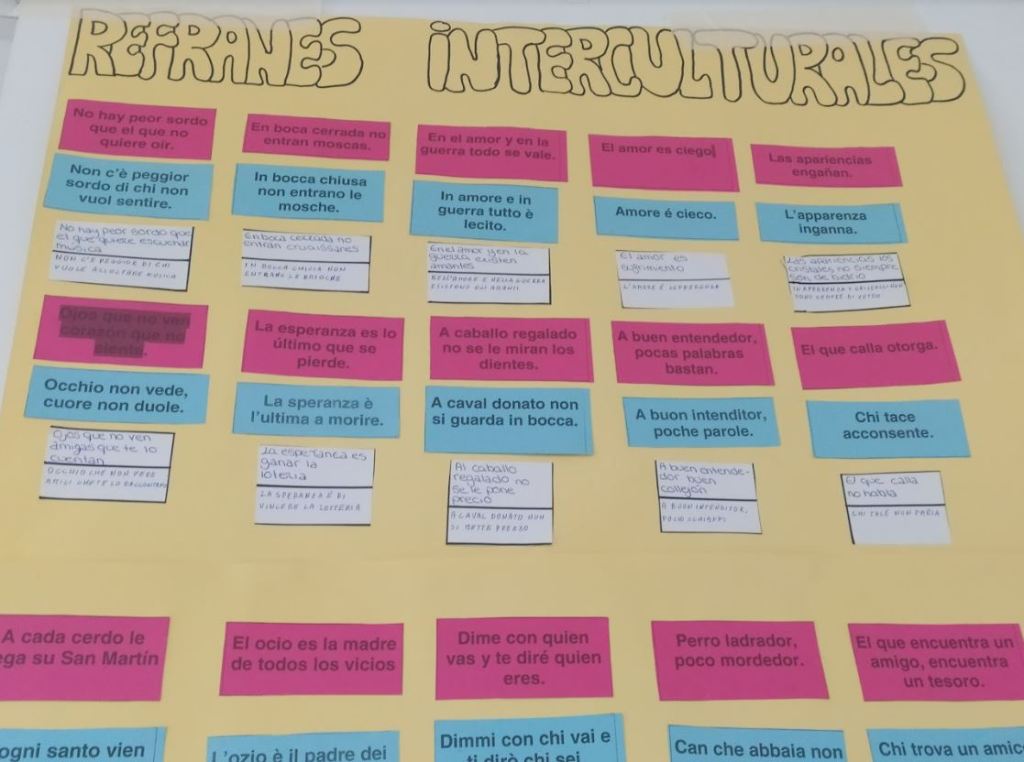 REFRANES INTERCULTURALES
No hay peor sordo
que el que no
quiere oir.
Non c'è peggior
sordo di chi non
vuol sentire.
No hay peor sordo que
el que quiere escuchar
musica
NON C'È PEGGIOR DI CHI
VUOLE ASCOLTARE MUSICA
En boca cerrada no
entran moscas.
In bocca chiusa
non entrano le
mosche.
En boca cerrada no
entran cruassanes
IN BOCCA CHIUSA NON
ENTRANO LE BRIOCHE
En el amor y en la
guerra todo se vale.
In amore e in
guerra tutto è
lecito.
En el amor y en la
guerra existen
amantes
NELL'AMORE E NELLA GUERRA
ESISTONO GLI AMANTI
El amor es ciego
Amore é cieco.
El amor es
sufrimiento
L'AMORE È SOFFERENZA
Las apariencias
engañan.
L'apparenza
inganna.
Las apariencias los
cristales no siempre
son de vidrio
Ojos que no ven
corazón que no
siente.
Occhio non vede,
cuore non duole.
Ojos que no ven
amigas que te lo
cuentan
OCCHIO CHE NON VEDE
AMICI CHE TE LO RACCONTANO
La esperanza es lo
último que se
pierde.
La speranza è
l'ultima a morire.
La esperanza es
ganar la
loteria
LA SPERANZA È DI
VINCERE LA LOTTERIA
A caballo regalado
no se le miran los
dientes.
A caval donato non
si guarda in bocca.
Al caballo
regalado no
se le pone
precio
A CAVAL DONATO NON
SI METTE PREZZO
A buen entendedor,
pocas palabras
bastan.
A buon intenditor,
poche parole.
A buen entende-
dor buen
collejón
A BUON INTENDITOR,
El que calla otorga.
Chi tace
acconsente.
El que calla
no habla
CHI TACE NON PARLA
A cada cerdo le
ega su San Martín
ogni santo vien
El ocio es la madre
de todos los vicios
L'ozio è il padre dei
Dime con quien
vas y te diré quien
eres.
Dimmi con chi vai e
ti dirò chi sei
Perro ladrador,
poco mordedor.
Can che abbaia non
El que encuentra un
amigo, encuentra
un tesoro.
Chi trova un amico